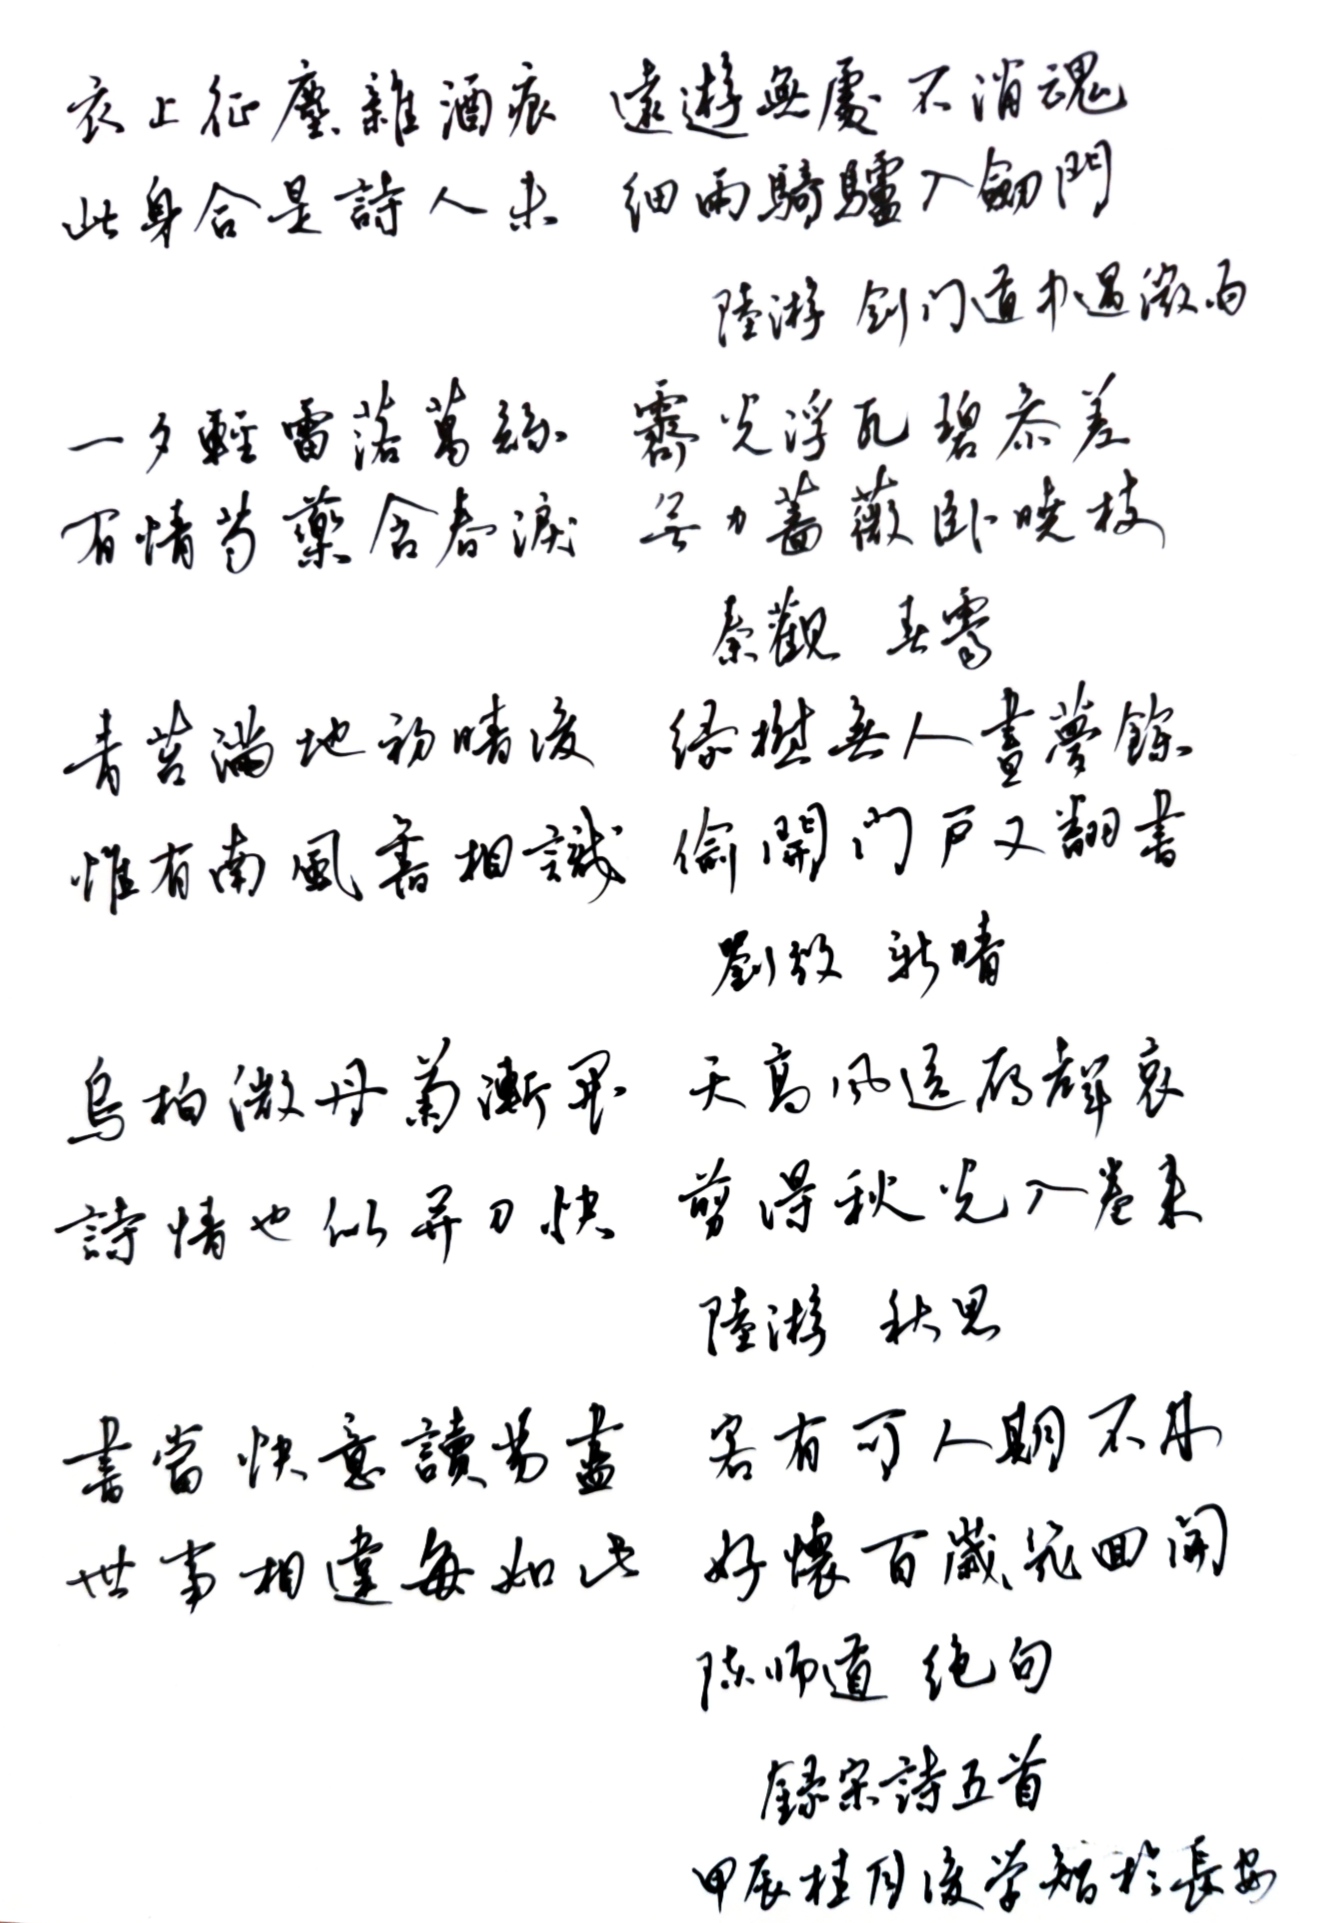 衣上征塵雜酒痕 遠遊無處不消魂
此身合是詩人未 细雨騎驢入劒門
陸游 剑门道中遇微雨
一夕輕雷落萬絲 霽光浮瓦碧參差
有情芍藥含春淚 无力蔷薇卧曉枝
秦觀 春雨
青苔滿地初晴後 绿樹無人晝夢餘
惟有南風舊相識 偷開门戶又翻書
劉攽 新晴
烏桕微丹菊漸開 天高风送雁聲哀
詩情也似并刀快 剪得秋光入卷來
陸游 秋思
書當快意讀易盡 客有可人期不來
世事相違每如此 好懷百歲几回開
陈师道 绝句
録宋詩五首
甲辰桂月後学智於長安